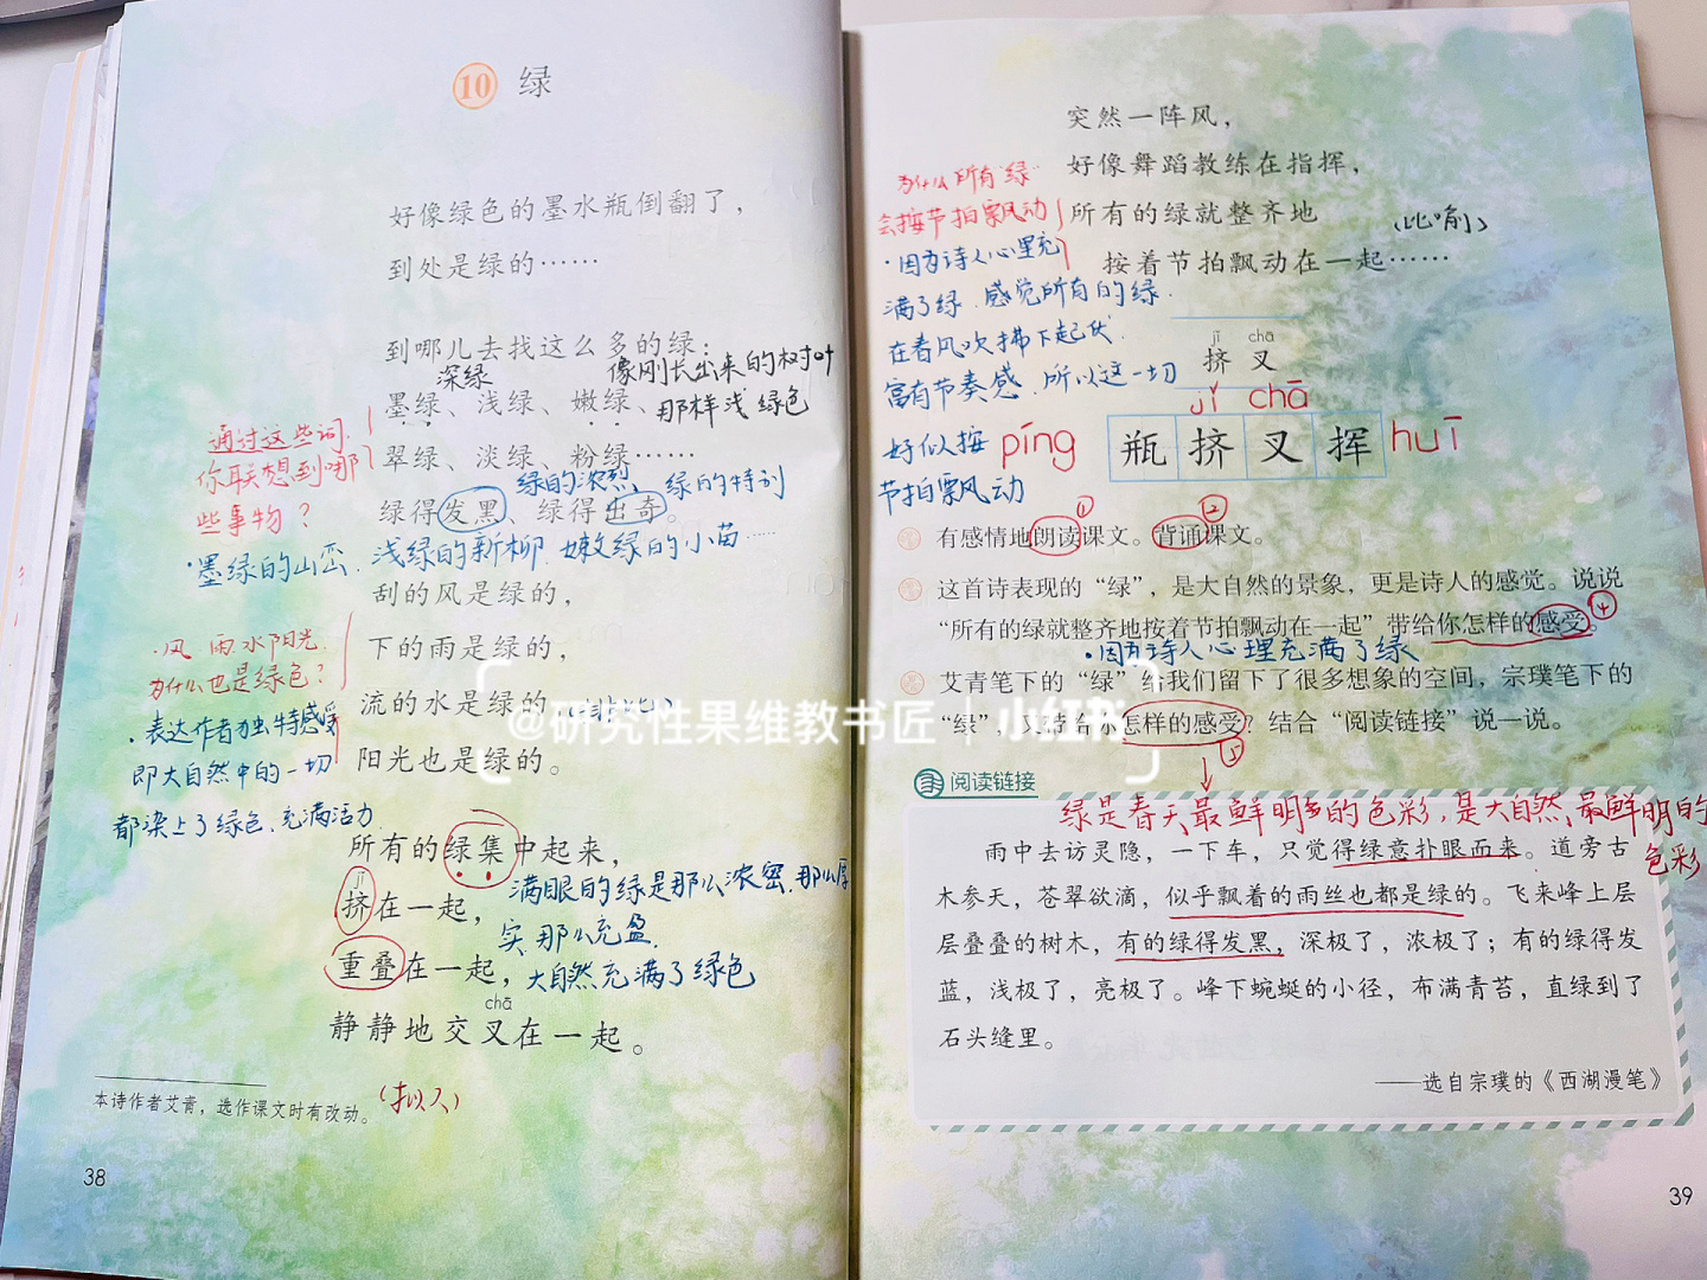 10 绿
好像绿色的墨水瓶倒翻了，
到处是绿的……
到哪儿去找这么多的绿：
深绿
像刚长出来的树叶
墨绿、浅绿、嫩绿、
那样浅 绿色
通过这些词，
你联想到哪
些事物？
翠绿、淡绿、粉绿……
绿的浓烈、绿的特别
绿得发黑、绿得出奇。
·墨绿的山峦、浅绿的新柳、嫩绿的小苗……
刮的风是绿的，
·风 雨 水 阳光
为什么也是绿色？
下的雨是绿的，
流的水是绿的，
(排比)
·表达作者独特感受
即大自然中的一切
都染上了绿色、充满活力
阳光也是绿的。
所有的绿集中起来，
满眼的绿是那么浓密、那么厚
实、那么充盈
jǐ
挤在一起，
重叠在一起，
大自然充满了绿色
chā
静静地交叉在一起。
(拟人)
本诗作者艾青，选作课文时有改动。
38
突然一阵风，
好像舞蹈教练在指挥，
所有的绿就整齐地
(比喻)
按着节拍飘动在一起……
为什么所有“绿”
会按节拍飘动
·因为诗人心里充
满了绿、感觉所有的绿
在春风吹拂下起伏
富有节奏感、所以这一切
好似按
节拍飘动
jǐ chā
挤 叉
jǐ chā
píng 瓶 挤 叉 挥 huī
① ②
有感情地朗读课文。背诵课文。
这首诗表现的“绿”，是大自然的景象，更是诗人的感觉。说说
“所有的绿就整齐地按着节拍飘动在一起”带给你怎样的感受。
④
·因为诗人心理充满了绿
艾青笔下的“绿”给我们留下了很多想象的空间，宗璞笔下的
“绿”，又带给你怎样的感受？结合“阅读链接”说一说。
⑤
@研究性果维教书匠 | 小红书
阅读链接
绿是春天最鲜明的色彩，是大自然最鲜明的
色彩
雨中去访灵隐，一下车，只觉得绿意扑眼而来。道旁古
木参天，苍翠欲滴，似乎飘着的雨丝也都是绿的。飞来峰上层
层叠叠的树木，有的绿得发黑，深极了，浓极了；有的绿得发
蓝，浅极了，亮极了。峰下蜿蜒的小径，布满青苔，直绿到了
石头缝里。
——选自宗璞的《西湖漫笔》
39